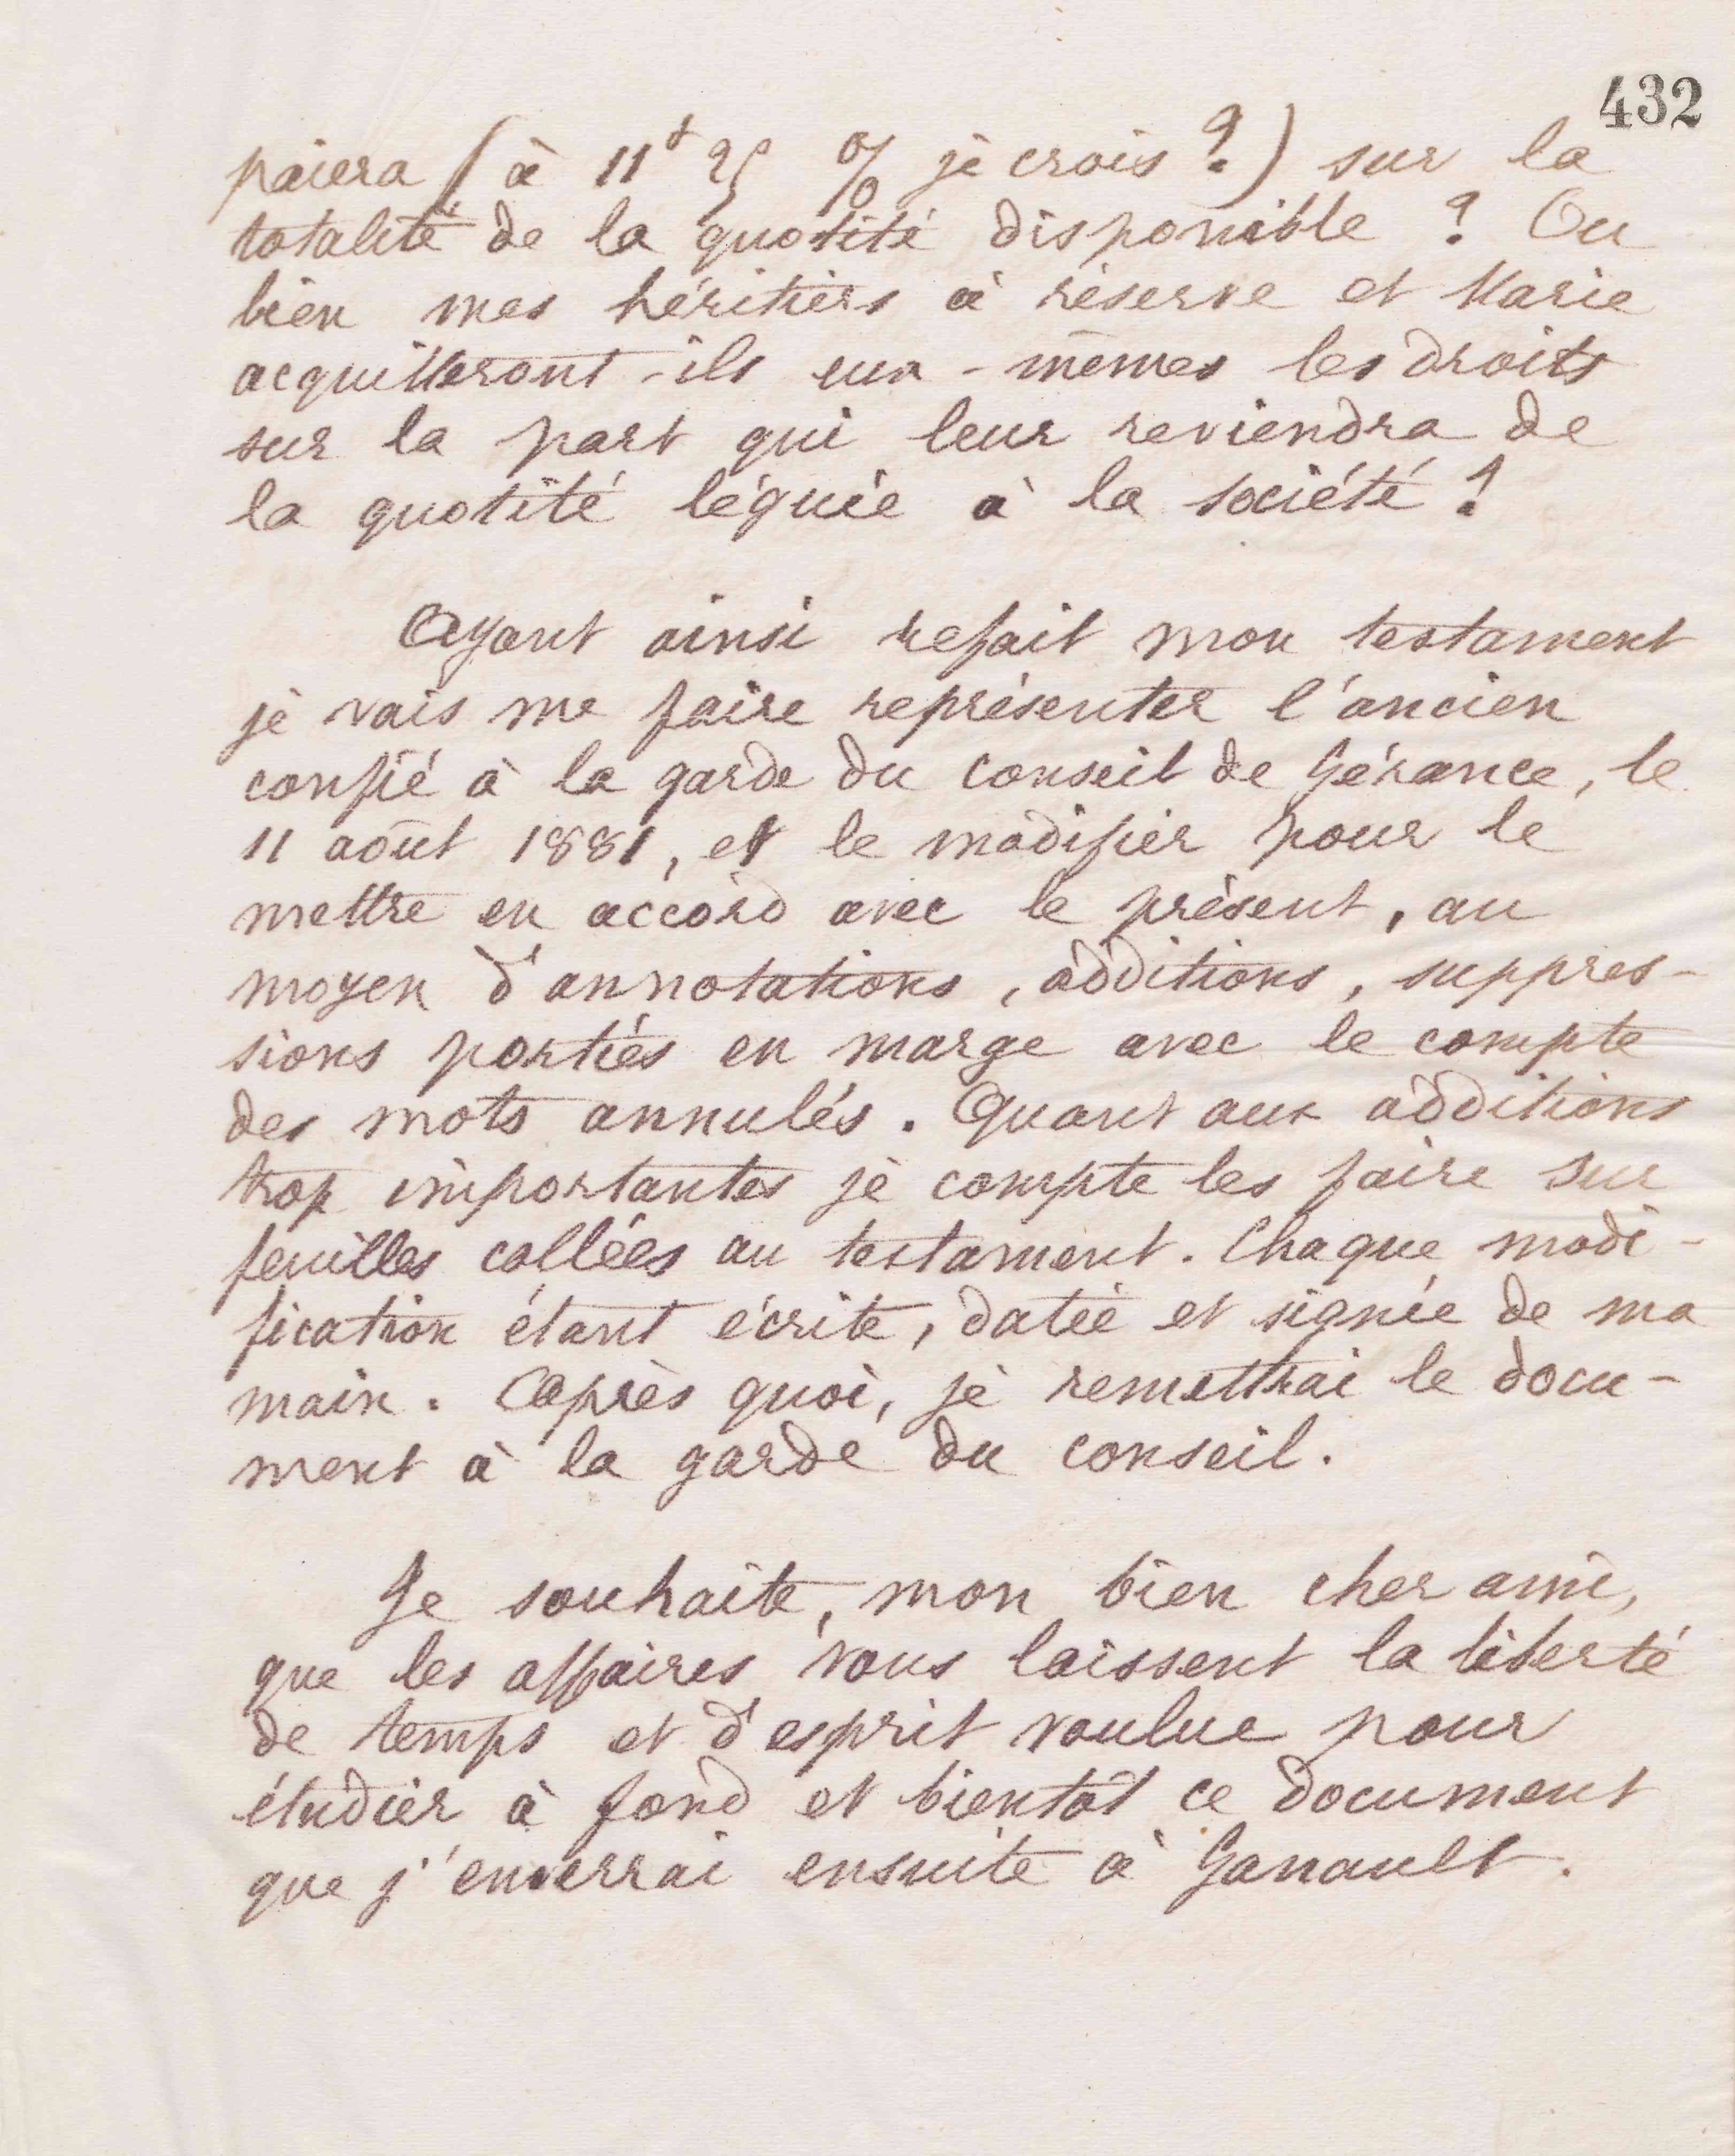 432
paiera (à 11f 25 % je crois ?) sur la
totalité de la quotité disponible ? Ou
bien mes héritiers à réserve et Marie
acquitteront-ils eux-mêmes les droits
sur la part qui leur reviendra de
la quotité léguée à la société ?
Ayant ainsi refait mon testament
je vais me faire représenter l'ancien
confié à la garde du Conseil de Gérance, le
11 août 1881, et le modifier pour le
mettre en accord avec le présent, au
moyen d'annotations, additions, suppres-
sions portées en marge avec le compte
des mots annulés. Quant aux additions
trop importantes je compte les faire sur
feuilles collées au testament. Chaque modi-
fication étant écrite, datée et signée de ma
main. Après quoi, je remettrai le docu-
ment à la garde du conseil.
Je souhaite, mon bien cher ami,
que les affaires vous laissent la liberté
de temps et d'esprit voulue pour
étudier à fond et bientôt ce document
que j'enverrai ensuite à Ganault.